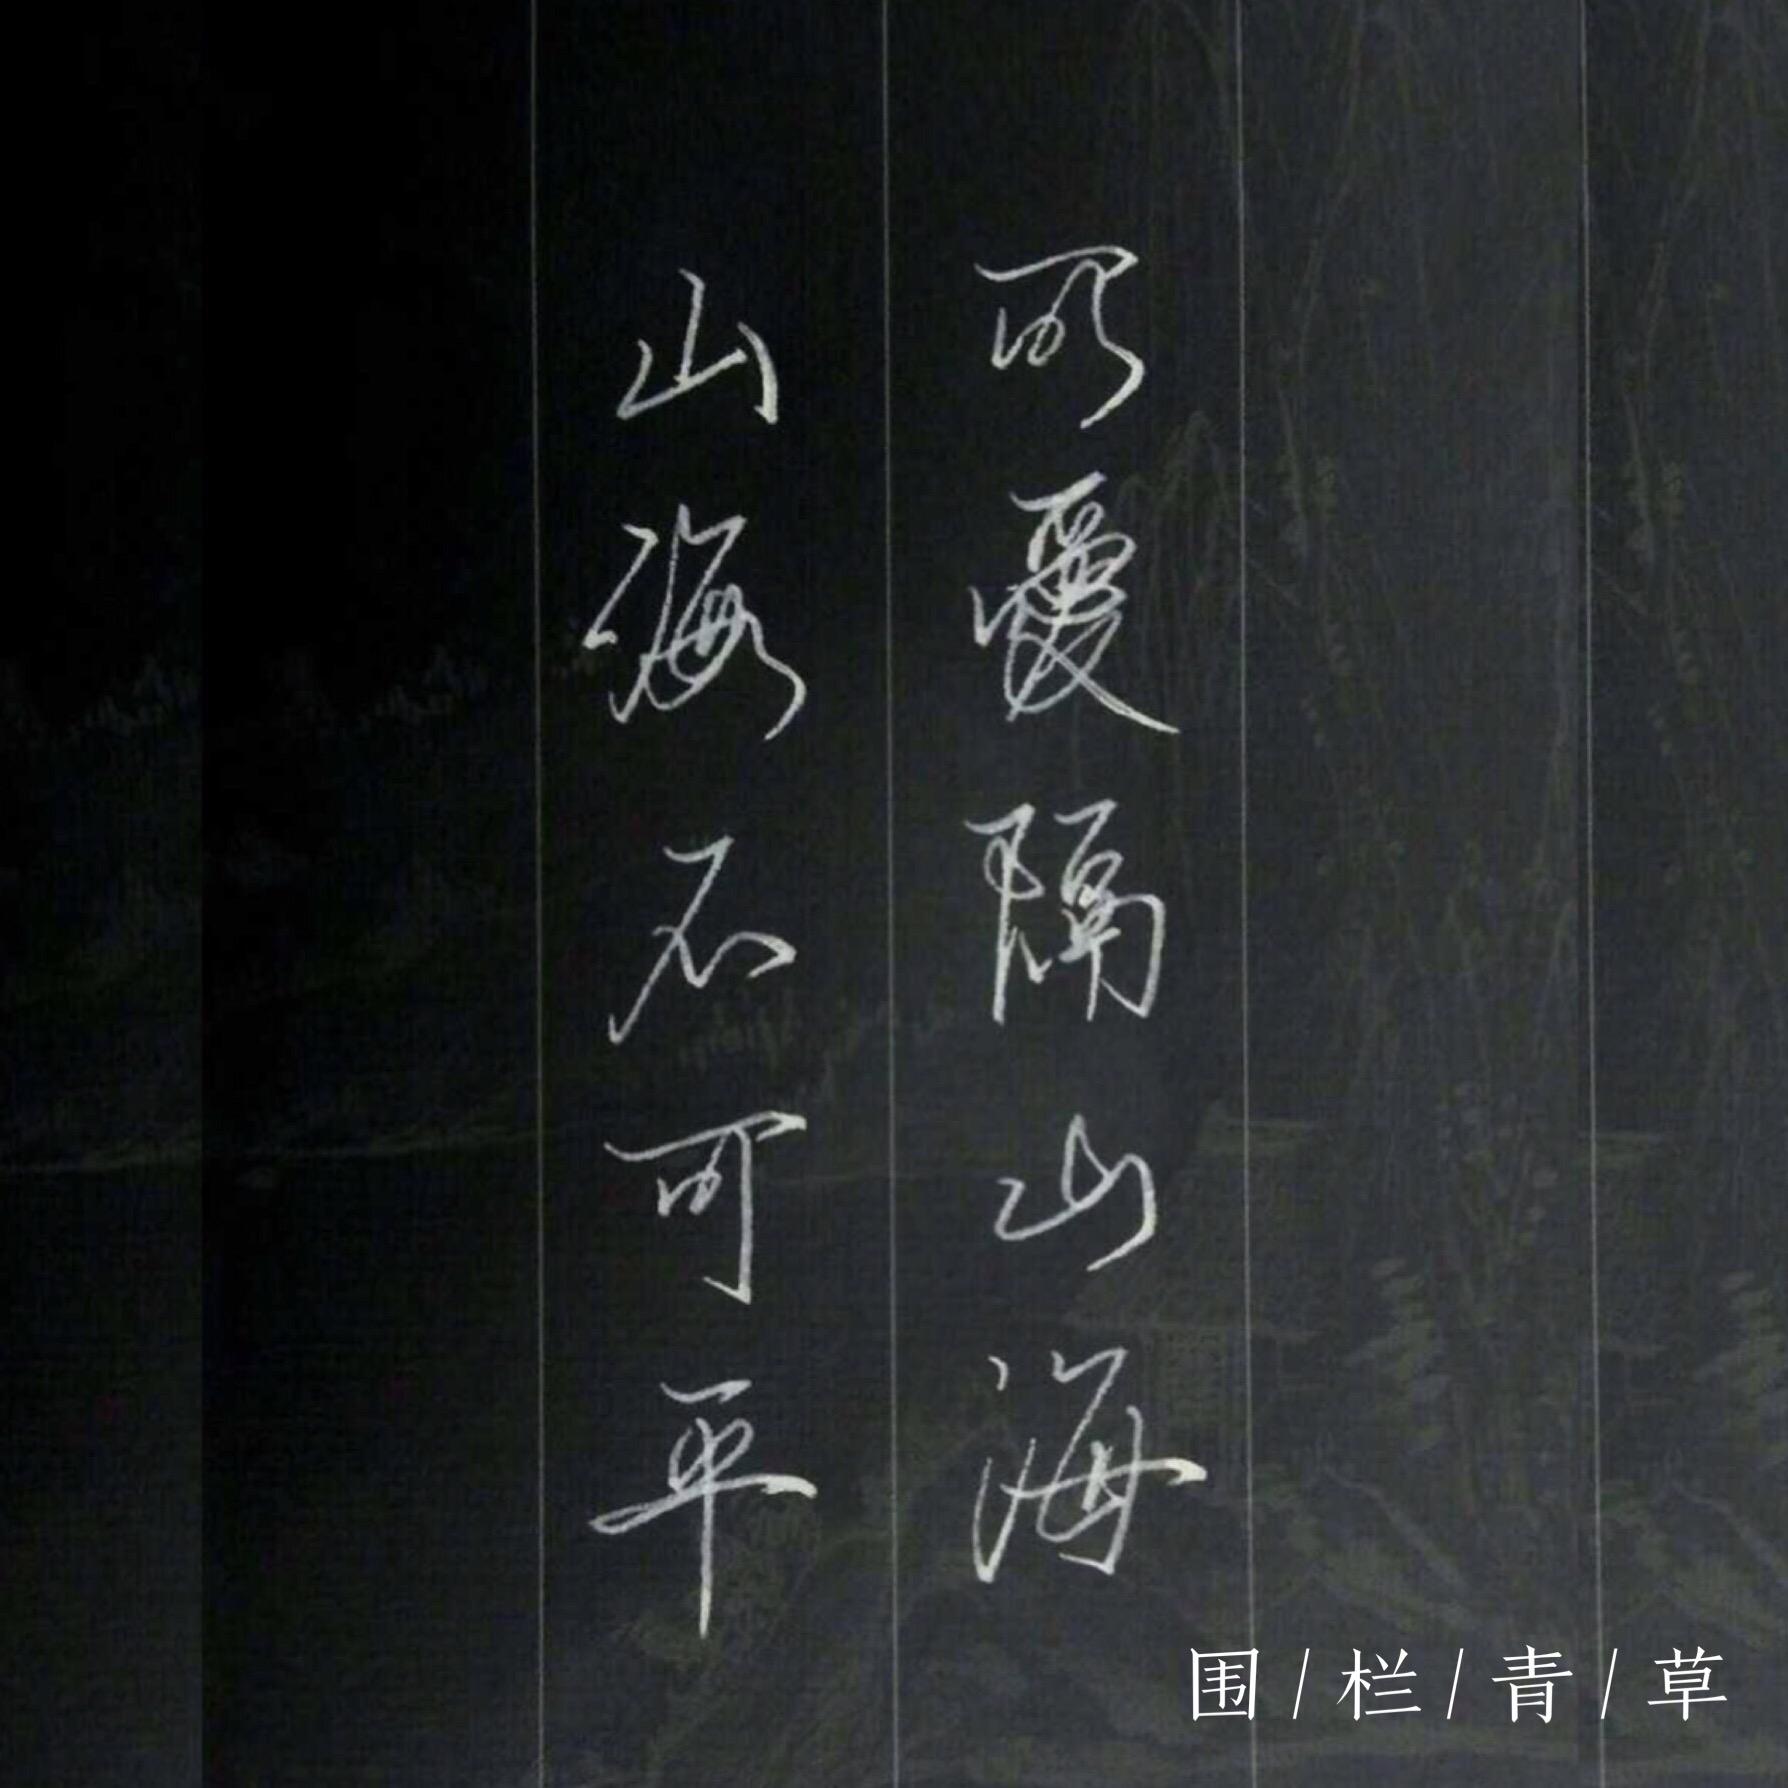 所愛隔山海
山海不可平
围/栏/青/草